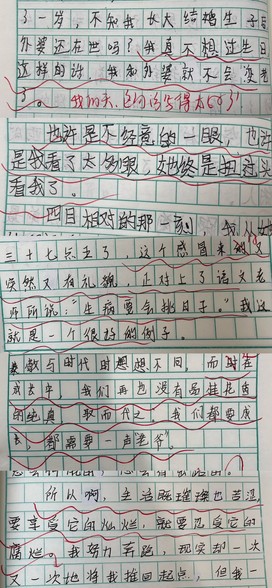 了一岁，不知我长大结婚生子时
外婆还在世吗？我真不想过生日
这样的话，我和外婆就不会变老
了。
也许是不经意的一眼，也许
是我看了太多眼，她终是扭过头
看我了。
四目相对的那一刻，我从她
三十七点五了，这个感冒来的又
突然又有礼貌，正对上了语文老
师所说：“生病要会挑日子”。我这
就是一个很好的例子。
数与时代时思想不同，而时在
成长中，我们再也没有品桂花香
的纯真，取而代之，我们都要成
长，都需要一声“老爷”。
所以啊，生活既璀璨也苦涩，
要享受它的灿烂，就要忍受它的
腐烂。我努力奔跑，现实却一次
又一次地将我推回起点，但我一